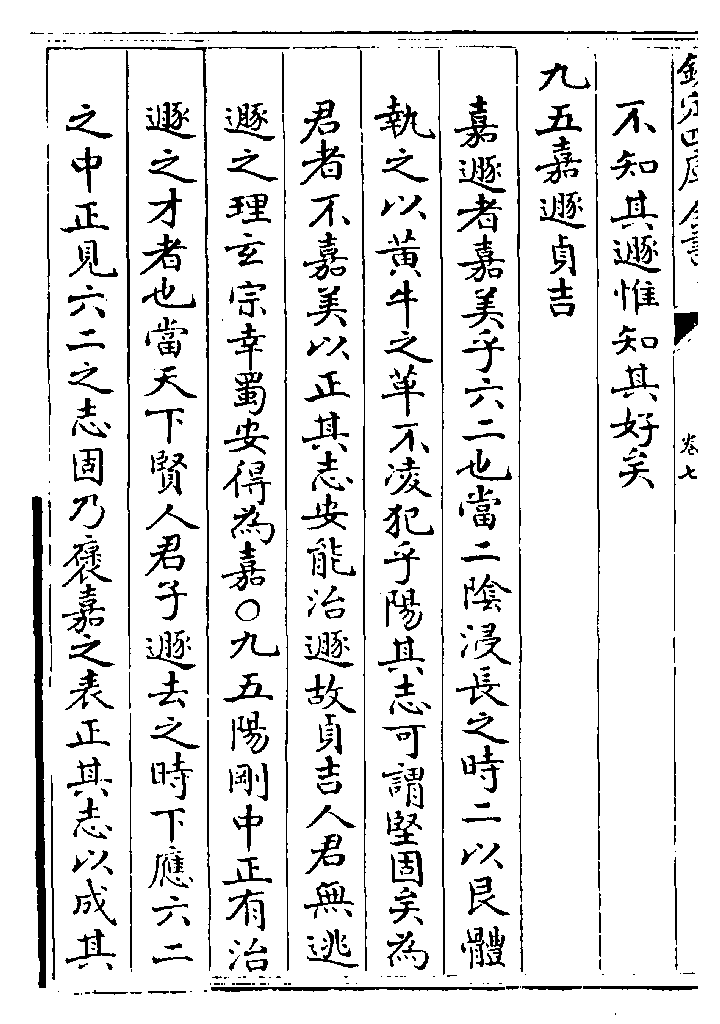 欽定四庫全書
卷七
不知其遯惟知其好矣
九五嘉遯貞吉
嘉遯者嘉美乎六二也當二陰浸長之時二以艮體
執之以黄牛之革不凌犯乎陽其志可謂堅固矣為
君者不嘉美以正其志安能治遯故貞吉人君無逃
遯之理玄宗幸蜀安得為嘉○九五陽剛中正有治
遯之才者也當天下賢人君子遯去之時下應六二
之中正見六二之志固乃褒嘉之表正其志以成其